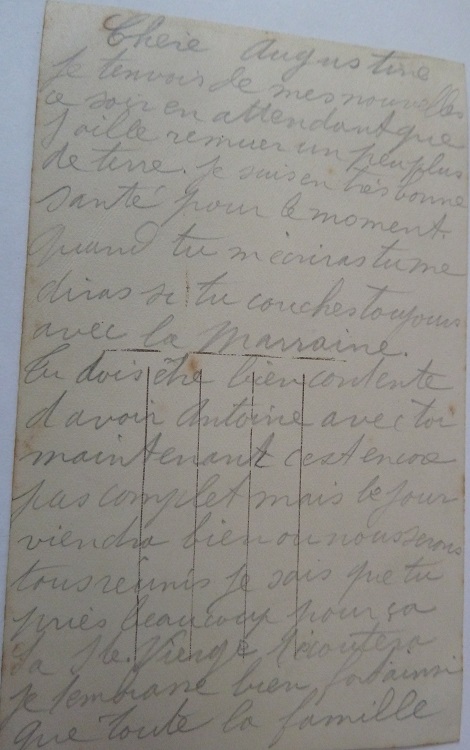 Cheie Augustine
Je tenvois de mes nouvelles
ce soir en attendant que
j aille remuer un peu plus
de terre. Je suis en très bonne
santé pour le moment.
quand tu m écriras tu me
diras si tu couches toujours
avec la Marraine.
Tu dois être bien contente
d avoir Antoine avec toi
maintenant c'est encore
pas complet mais le jour
viendra bien ou nous serons
tous réunis je sais que tu
pries beaucoup pour ça
la Ste. Vierge t'écoutera
je tembrasse bien fort ainsi
que toute la famille